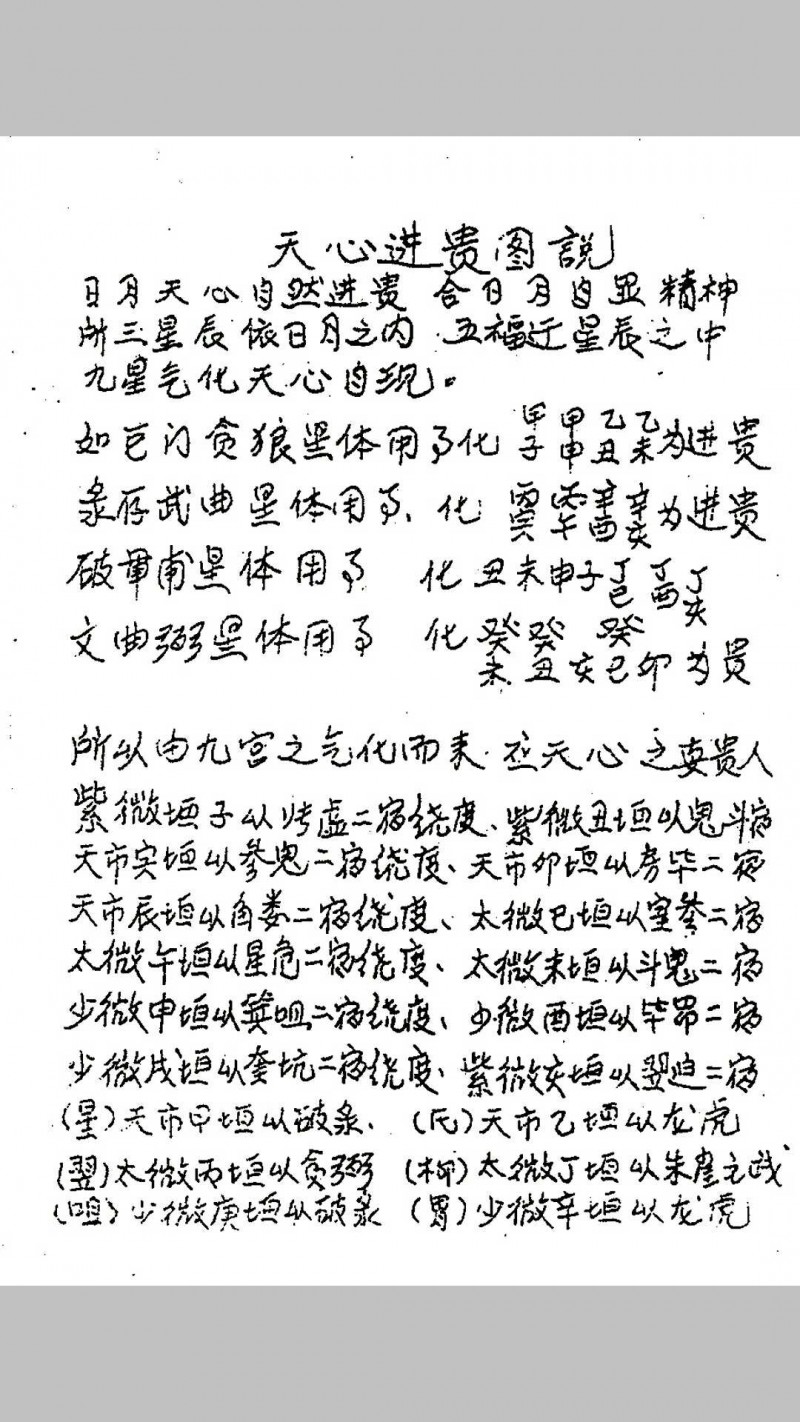 天心进贵图説
日月天心自然进贵 合日月自显精神
所三星辰依日月之内 五福迁星辰之中
九星气化天心自现。
如巨门贪狼星体用 化 甲子 甲申 乙丑 乙未 为进贵
彔存武曲星体用 、化 丙寅 丙午 辛酉 辛亥 为进贵
破軍甫星体用 化 丑未申子 丁巳 丁酉 丁亥
文曲弼星体用 化 癸未 癸丑 亥 癸巳 卯 为贵
所以由九宫之气化而来. 天心之 贵人
紫微垣子以 虚二宿绕度、紫微丑垣以鬼斗宿
天市寅垣以参鬼二宿绕度、天市卯垣以房毕二宿
天市辰垣以角娄二宿绕度、太微巳垣以室参二宿
太微午垣以星危二宿绕度、太微未垣以斗鬼二宿
少微申垣以箕咀二宿绕度、少微酉垣以毕昴二宿
少微戌垣以奎坑二宿绕度、紫微亥垣以翌 二宿
(星)天市甲垣以破彔、(氐)天市乙垣以龙虎
(翌)太微丙垣以贪弼 (柳)太微丁垣以朱雀元武
(咀)少微庚垣以破彔 (胃)少微辛垣以龙虎